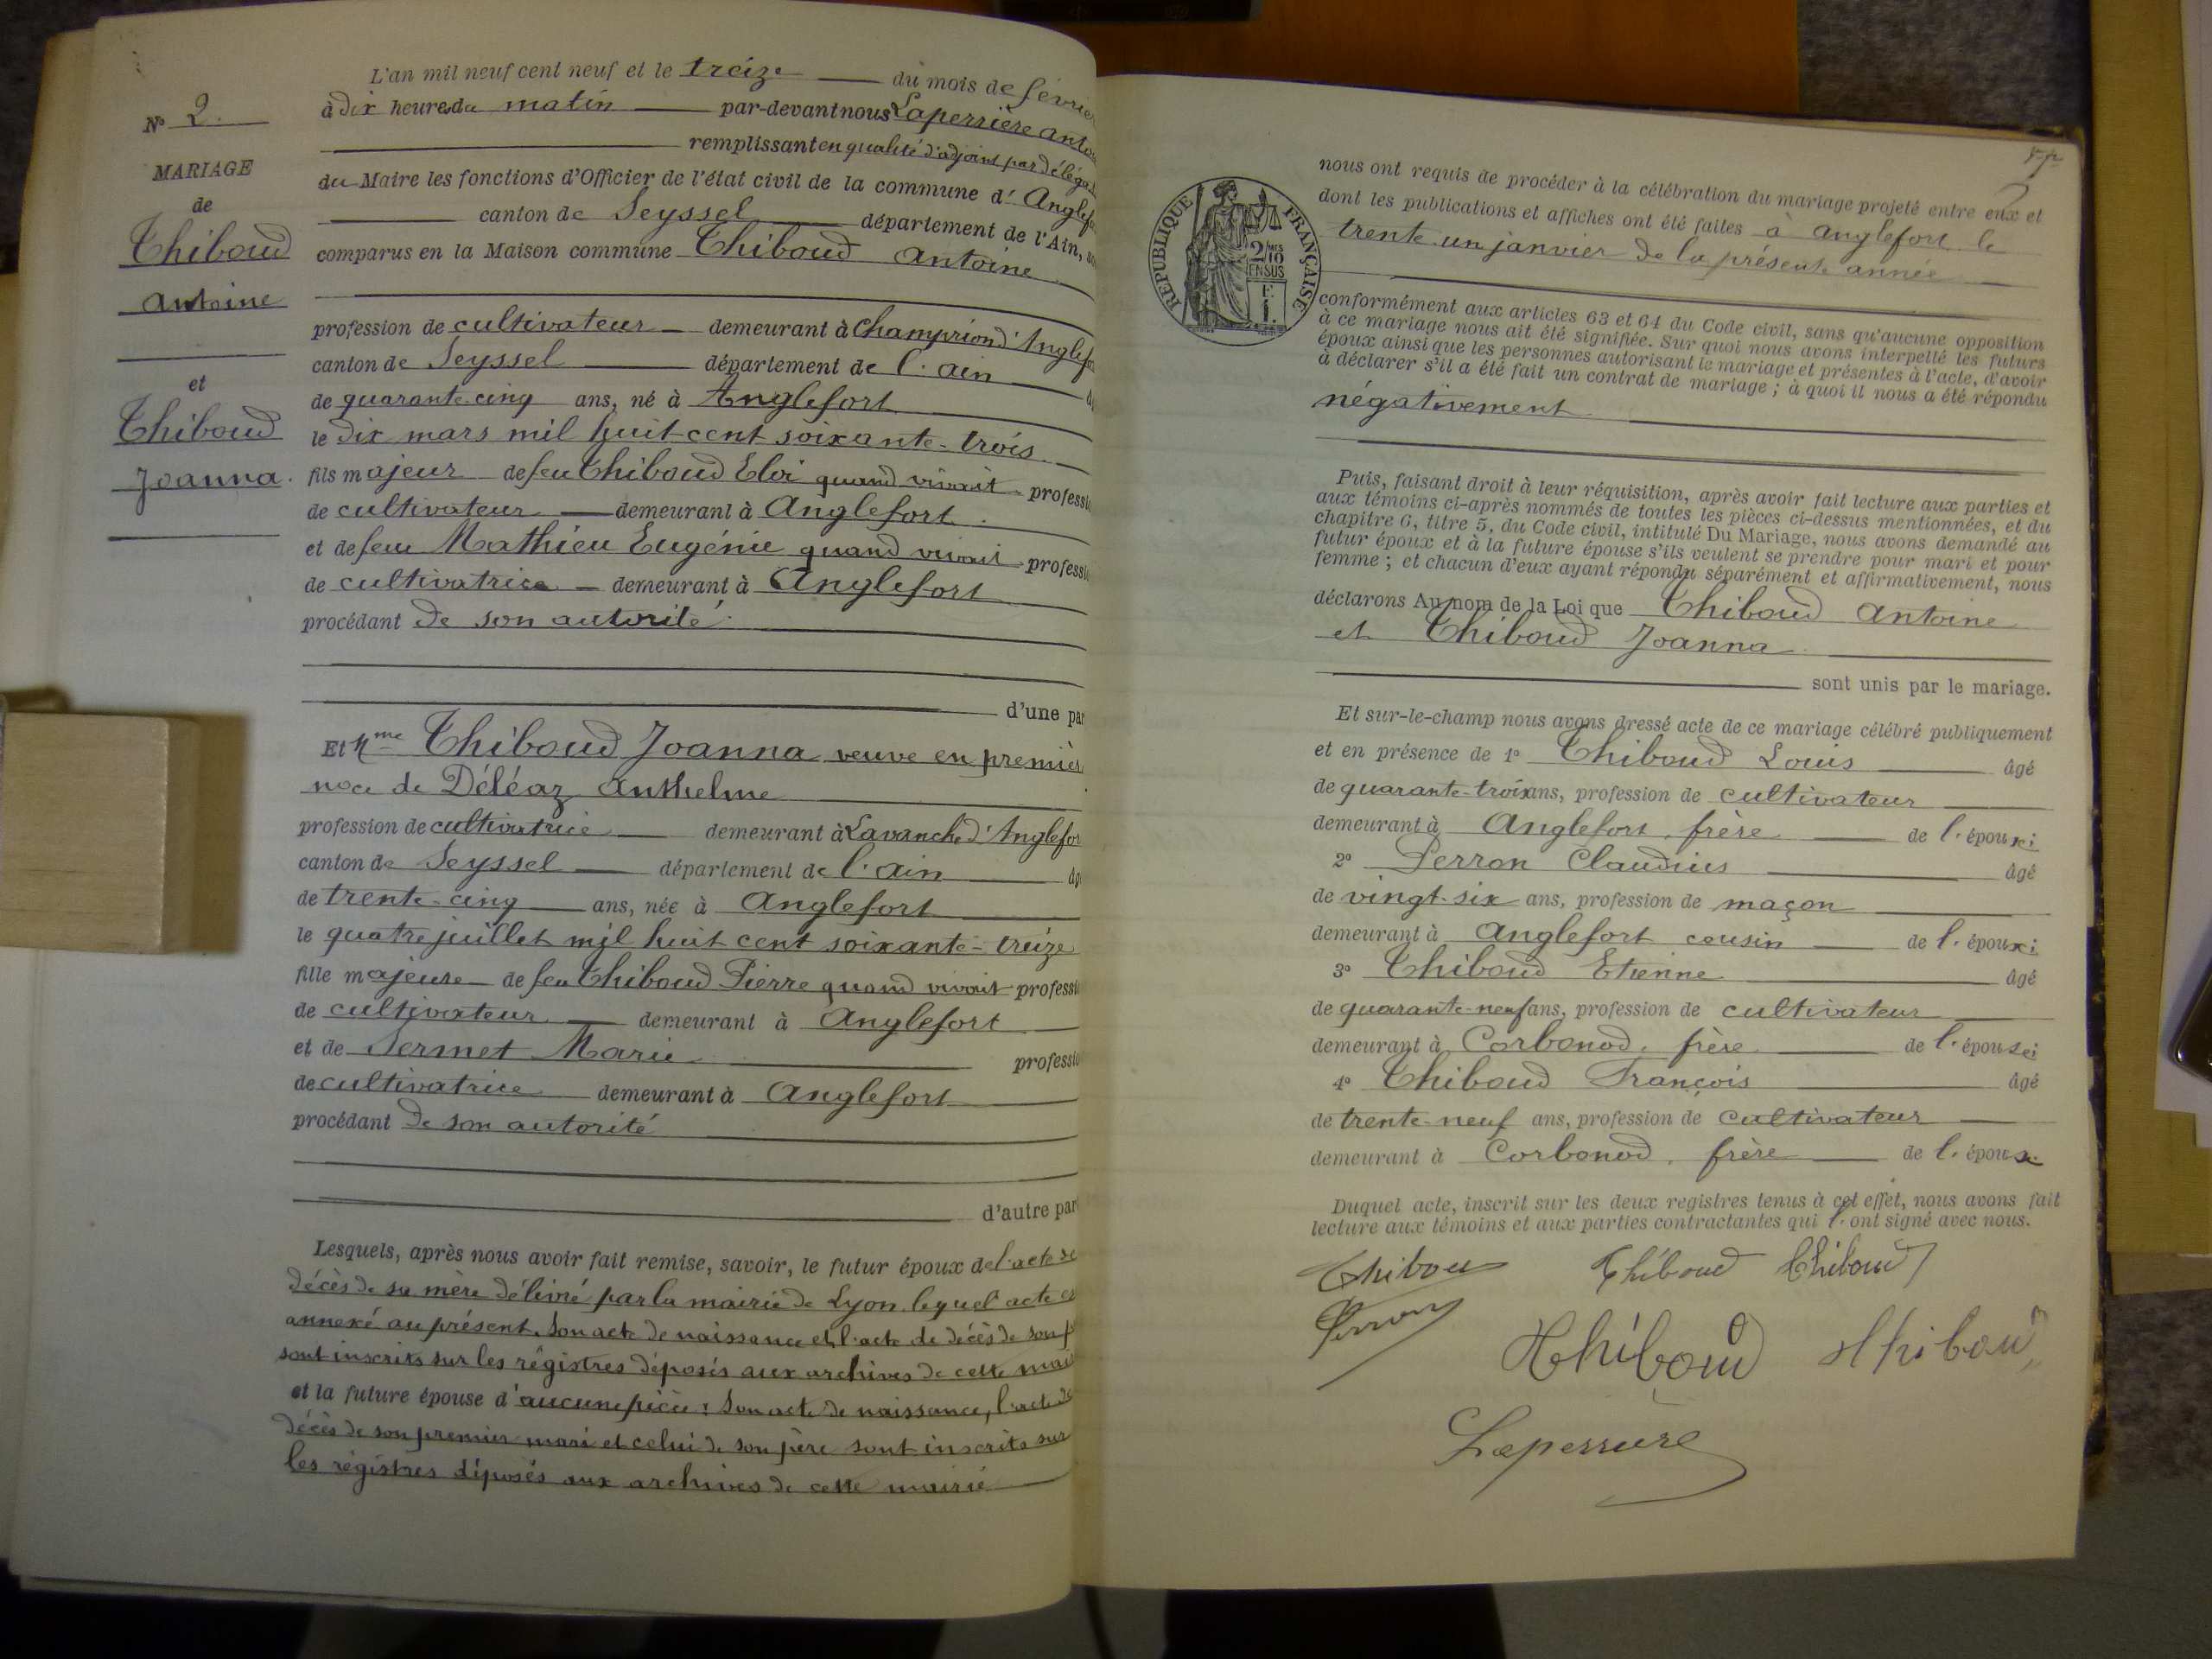 L'an mil neuf cent neuf et le treize du mois de février
à dix heures du matin par-devant nous Laperrière
remplissant en qualité d'adjoint par
du Maire les fonctions d'Officier de l'état civil de la commune d'
canton de Seyssel département de l'Ain,
comparus en la Maison commune Thiboud Antoine
profession de cultivateur demeurant à Champriond d'
canton de Seyssel département de l'ain
de quarante-cinq ans, né à Anglefort
le dix mars mil huit cent soixante-trois
fils majeur de feu Thiboud Eloi quand vivait
de cultivateur demeurant à Anglefort
et de feu Mathieu Eugénie quand vivait
de cultivatrice demeurant à Anglefort
procédant de son autorité
d'une
Et Mme Thiboud Joanna veuve en
noce de Déléaz Anthelme
profession de cultivatrice demeurant à Lavanche d'
canton de Seyssel département de l'ain
de trente-cinq ans, née à Anglefort
le quatre juillet mil huit cent soixante-treize
fille majeure de feu Thiboud Pierre quand vivait
de cultivateur demeurant à Anglefort
et de Sermet Marie
de cultivatrice demeurant à Anglefort
procédant de son autorité
d'autre
Lesquels, après nous avoir fait remise, savoir, le futur époux de l'acte de
décès de sa mère délivré par la mairie de Lyon lequel acte
annexé au présent. Son acte de naissance et l'acte de décès de son
sont inscrits sur les régistres déposés aux archives de cette
et la future épouse d'aucune pièce : Son acte de naissance, l'acte de
décès de son premier mari et celui de son père sont inscrits sur
les régistres déposés aux archives de cette mairie
N° 2.
MARIAGE
de
Thiboud
Antoine
et
Thiboud
Joanna.
RÉPUBLIQUE FRANÇAISE
2/10
EN SUS
nous ont requis de procéder à la célébration du mariage projeté entre eux et
dont les publications et affiches ont été faites à Anglefort le
trente-un janvier de la présente année
conformément aux articles 63 et 64 du Code civil, sans qu'aucune opposition
à ce mariage nous ait été signifiée. Sur quoi nous avons interpellé les futurs
époux ainsi que les personnes autorisant le mariage et présentes à l'acte, d'avoir
à déclarer s'il a été fait un contrat de mariage ; à quoi il nous a été répondu
négativement
Puis, faisant droit à leur réquisition, après avoir fait lecture aux parties et
aux témoins ci-après nommés de toutes les pièces ci-dessus mentionnées, et du
chapitre 6, titre 5, du Code civil, intitulé Du Mariage, nous avons demandé au
futur époux et à la future épouse s'ils veulent se prendre pour mari et pour
femme ; et chacun d'eux ayant répondu séparément et affirmativement, nous
déclarons Au nom de la Loi que Thiboud Antoine
et Thiboud Joanna
sont unis par le mariage.
Et sur-le-champ nous avons dressé acte de ce mariage célébré publiquement
et en présence de 1° Thiboud Louis âgé
de quarante-trois ans, profession de cultivateur
demeurant à Anglefort, frère de l'époux ;
2° Perron Claudius âgé
de vingt-six ans, profession de maçon
demeurant à Anglefort cousin de l'époux ;
3° Thiboud Etienne âgé
de quarante-neuf ans, profession de cultivateur
demeurant à Corbonod, frère de l'épouse ;
4° Thiboud François âgé
de trente-neuf ans, profession de cultivateur
demeurant à Corbonod, frère de l'épouse.
Duquel acte, inscrit sur les deux registres tenus à cet effet, nous avons fait
lecture aux témoins et aux parties contractantes qui l'ont signé avec nous.
Thibou Thiboud Thiboud
Perron
Thiboud Thiboud
Laperrière